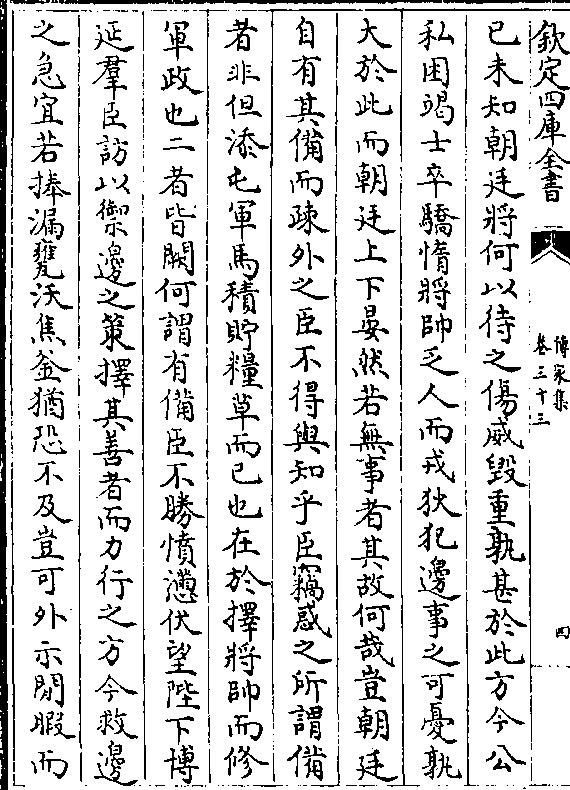 欽定四庫全書
傳家集
卷三十三
四
已未知朝廷將何以待之傷威毀重孰甚於此方今公
私困竭士卒驕惰將帥乏人而戎狄犯邊事之可憂孰
大於此而朝廷上下晏然若無事者其故何哉豈朝廷
自有其備而疎外之臣不得與知乎臣竊惑之所謂備
者非但添屯軍馬積貯糧草而已也在於擇將帥而修
軍政也二者皆闕何謂有備臣不勝憤懣伏望陛下博
延羣臣訪以禦邊之策擇其善者而力行之方今救邊
之急宜若捧漏甕沃焦釜猶恐不及豈可外示閒暇而